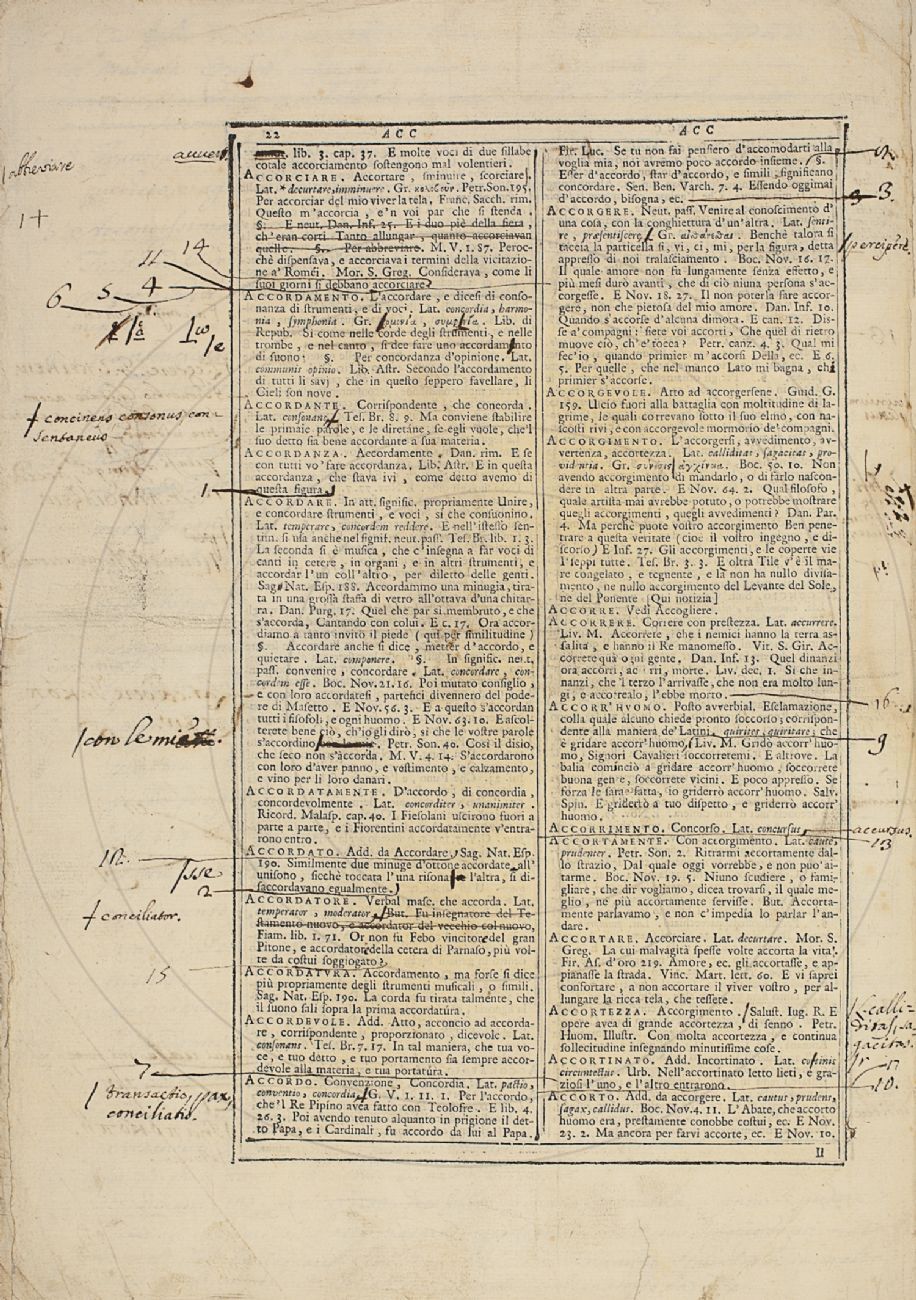 22 ACC
ACC
lib. 3. cap. 37. E molte voci di due sillabe
cotale accorciamento sostengono mal volentieri.
ACCORCIARE. Accortare, sminuire, scorciare.
Lat. * decurtare, imminuere. Gr. Petr. Son. 195.
Per accorciar del mio viver la tela. Franc. Sacch. rim.
Questo m'accorcia, e'n voi par che si stenda.
§. E neut. Dan. Inf. 25. E i duo piè della fiera,
ch'eran corti Tanto allungar, quanto accorciavan
quelle. §. Per abbreviare. M. V. 1. 87. Peroc-
chè dispensava, e accorciava i termini della vicitazio-
ne a' Romei. Mor. S. Greg. Considerava, come li
suoi giorni si debbano accorciare
ACCORDAMENTO. L'accordare, e dicesi di conso-
nanza di strumenti, e di voci. Lat. concordia, harmo-
nia, symphonia. Gr. Lib. di
Repub. Si come nelle corde degli strumenti, e nelle
trombe, e nel canto, si dee fare uno accordamento
di suono. §. Per concordanza d'opinione. Lat.
communis opinio. Lib. Astr. Secondo l'accordamento
di tutti li savj, che in questo seppero favellare, li
Cieli son nove.
ACCORDANTE. Corrispondente, che concorda.
Lat. consonans. Tes. Br. 8. 9. Ma conviene stabilire
le primaje parole, e le diretane, se egli vuole, che'l
suo detto sia bene accordante a sua materia.
ACCORDANZA. Accordamento. Dan. rim. E se
con tutti vo' fare accordanza. Lib. Astr. E in questa
accordanza, che stava ivi, come detto avemo di
questa figura.
ACCORDARE. In att. signific. propriamente Unire,
e concordare strumenti, e voci, si che consuonino.
Lat. temperare, concordem reddere. E nell'istesso sen-
tim. si usa anche nel signif. neut. pass. Tes. Br. lib. 1. 3.
La seconda si è musica, che c'insegna a far voci di
canti in cetere, in organi, e in altri strumenti, e
accordar l'un coll'altro, per diletto delle genti.
Sag. Nat. Esp. 188. Accordammo una minugia, tira-
ta in una grossa staffa di vetro all'ottava d'una chitar-
ra. Dan. Purg. 17. Quel che par sì membruto, e che
s'accorda, Cantando con colui. E c. 17. Ora accor-
diamo a tanto invito il piede (qui per similitudine)
§. Accordare anche si dice, metter d'accordo, e
quietare. Lat. componere. §. In signific. neut.
pass. convenire, concordare. Lat. concordare, con-
cordem esse. Boc. Nov. 21. 16. Poi mutato consiglio,
e con loro accordatesi, partefici divennero del pode-
re di Masetto. E Nov. 56. 3. E a questo s'accordan
tutti i fisofoli, e ogni huomo. E Nov. 63. 10. E ascol-
terete bene ciò, ch'io gli dirò, sì che le vostre parole
s'accordino Petr. Son. 40. Così il disio,
che seco non s'accorda. M. V. 4. 14. S'accordarono
con loro d'aver panno, e vestimento, e calzamento,
e vino per li loro danari.
ACCORDATAMENTE. D'accordo, di concordia,
concordevolmente. Lat. concorditer, unanimiter.
Ricord. Malasp. cap. 40. I Fiesolani uscirono fuori a
parte a parte, e i Fiorentini accordatamente v'entra-
rono entro.
ACCORDATO. Add. da Accordare. Sag. Nat. Esp.
190. Similmente due minuge d'ottone accordate all'
unisono, sicchè toccata l'una risona l'altra, si di-
saccordavano egualmente.
ACCORDATORE. Verbal masc. che accorda. Lat.
temperator, moderator. But. Fu insegnatore del Te-
stamento nuovo, e accordator del vecchio col nuovo,
Fiam. lib. 1. 71. Or non fu Febo vincitore del gran
Pitone, e accordatore della cetera di Parnaso, più vol-
te da costui soggiogato?
ACCORDATURA. Accordamento, ma forse si dice
più propriamente degli strumenti musicali, o simili.
Sag. Nat. Esp. 190. La corda fu tirata talmente, che
il suono salì sopra la prima accordatura.
ACCORDEVOLE. Add. Atto, acconcio ad accorda-
re, corrispondente, proporzionato, dicevole. Lat.
consonans. Tes. Br. 7. 17. In tal maniera, che tua vo-
ce, e tuo detto, e tuo portamento sia sempre accor-
devole alla materia, e tua portatura.
ACCORDO. Convenzione, Concordia. Lat. pactio,
conventio, concordia. G. V. 1. 11. 1. Per l'accordo,
che'l Re Pipino avea fatto con Teolofre. E lib. 4.
26. 3. Poi avendo tenuto alquanto in prigione il det-
to Papa, e i Cardinali, fu accordo da lui al Papa.
Fir. Luc. Se tu non fai pensiero d'accomodarti alla
voglia mia, noi avremo poco accordo insieme. §.
Esser d'accordo, star d'accordo, e simili, significano
concordare. Sen. Ben. Varch. 7. 4. Essendo oggimai
d'accordo, bisogna, ec.
ACCORGERE. Neut. pass. Venire al conoscimento d'
una cosa, con la conghiettura d'un'altra. Lat. senti-
re, præsentiscere. Gr. Benchè talora si
taccia la particella si, vi, ci, mi, per la figura, detta
appresso di noi tralasciamento. Boc. Nov. 16. 17.
Il quale amore non fu lungamente senza effetto, e
più mesi durò avanti, che di ciò niuna persona s'ac-
corgesse. E Nov. 18. 27. Il non poterla fare accor-
gere, non che pietosa del mio amore. Dan. Inf. 10.
Quando s'accorse d'alcuna dimora. E can. 12. Dis-
se a' compagni: siete voi accorti, Che quel di rietro
muove ciò, ch'e' tocca? Petr. canz. 4. 3. Qual mi
fec'io, quando primier m'accorsi Della, ec. E 6.
5. Per quelle, che nel manco Lato mi bagna, chi
primier s'accorse.
ACCORGEVOLE. Atto ad accorgersene. Guid. G.
159. Uscìo fuori alla battaglia con moltitudine di la-
grime, le quali correvano sotto il suo elmo, con na-
scosti rivi, e con accorgevole mormorio de' compagni.
ACCORGIMENTO. L'accorgersi, avvedimento, av-
vertenza, accortezza. Lat. calliditas, sagacitas, pro-
videntia. Gr. Boc. 50. 10. Non
avendo accorgimento di mandarlo, o di farlo nascon-
dere in altra parte. E Nov. 64. 2. Qual filosofo,
quale artista mai avrebbe potuto, o potrebbe mostrare
quegli accorgimenti, quegli avvedimenti? Dan. Par.
4. Ma perchè puote vostro accorgimento Ben pene-
trare a questa veritate (cioè il vostro ingegno, e di-
scorso) E Inf. 27. Gli accorgimenti, e le coperte vie
I' seppi tutte. Tes. Br. 3. 3. E oltra Tile v'è il ma-
re congelato, e tegnente, e là non ha nullo divisa-
mento, ne nullo accorgimento del Levante del Sole,
ne del Ponente [Qui notizia]
ACCORRE. Vedi Accogliere.
ACCORRERE. Correre con prestezza. Lat. accurrere.
Liv. M. Accorrere, che i nemici hanno la terra as-
salita, e hanno il Re manomesso. Vit. S. Gir. Ac-
correte quà ogni gente. Dan. Inf. 13. Quel dinanzi
ora accorri, accorri, morte. Liv. dec. 1. Sì che in-
nanzi, che'l terzo l'arrivasse, che non era molto lun-
gi, e accorrealo, l'ebbe morto.
ACCORR'HUOMO. Posto avverbial. Esclamazione,
colla quale alcuno chiede pronto soccorso; corrispon-
dente alla maniera de' Latini, quirites, quiritare; che
è gridare accorr'huomo. Liv. M. Gridò accorr'huo-
mo, Signori Cavalieri soccorretemi. E altrove. La
balia cominciò a gridare accorr'huomo, soccorrete
buona gente, soccorrete vicini. E poco appresso. Se
forza le sarà fatta, io griderrò accorr'huomo. Salv.
Spin. E griderrò a tuo dispetto, e griderrò accorr'
huomo.
ACCORRIMENTO. Concorso. Lat. concursus,
ACCORTAMENTE. Con accorgimento. Lat. cautè,
prudenter. Petr. Son. 2. Ritrarmi accortamente dal-
lo strazio, Dal quale oggi vorrebbe, e non può ai-
tarme. Boc. Nov. 19. 5. Niuno scudiere, o fami-
gliare, che dir vogliamo, dicea trovarsi, il quale me-
glio, ne più accortamente servisse. But. Accorta-
mente parlavamo, e non c'impedia lo parlar l'an-
dare.
ACCORTARE. Accorciare. Lat. decurtare. Mor. S.
Greg. La cui malvagità spesse volte accorta la vita.
Fir. As. d'oro 219. Amore, ec. gli accortasse, e ap-
pianasse la strada. Vinc. Mart. lett. 60. E vi saprei
confortare, a non accortare il viver vostro, per al-
lungare la ricca tela, che tessete.
ACCORTEZZA. Accorgimento. Salust. Iug. R. E
opere avea di grande accortezza, di senno. Petr.
Huom. Illustr. Con molta accortezza, e continua
sollecitudine insegnando minutissime cose.
ACCORTINATO. Add. Incortinato. Lat. cortinis
circuntectus. Urb. Nell'accortinato letto lieti, e gra-
ziosi l'uno, e l'altro entrarono.
ACCORTO. Add. da accorgere. Lat. cautus, prudens,
sagax, callidus. Boc. Nov. 4. 11. L'Abate, che accorto
huomo era, prestamente conobbe costui, ec. E Nov.
23. 2. Ma ancora per farvi accorto, ec. E Nov. 10.
II
abbreviare
14
14
11
4
5
6
concinens consonus con-
sentaneus
1
con le mie
10
sse
2
conciliator.
15
7
transactio, pax,
conciliatio.
2
3.
16
9
accursus.
13
calli-
ditas, sa-
gacitas.
17
10.